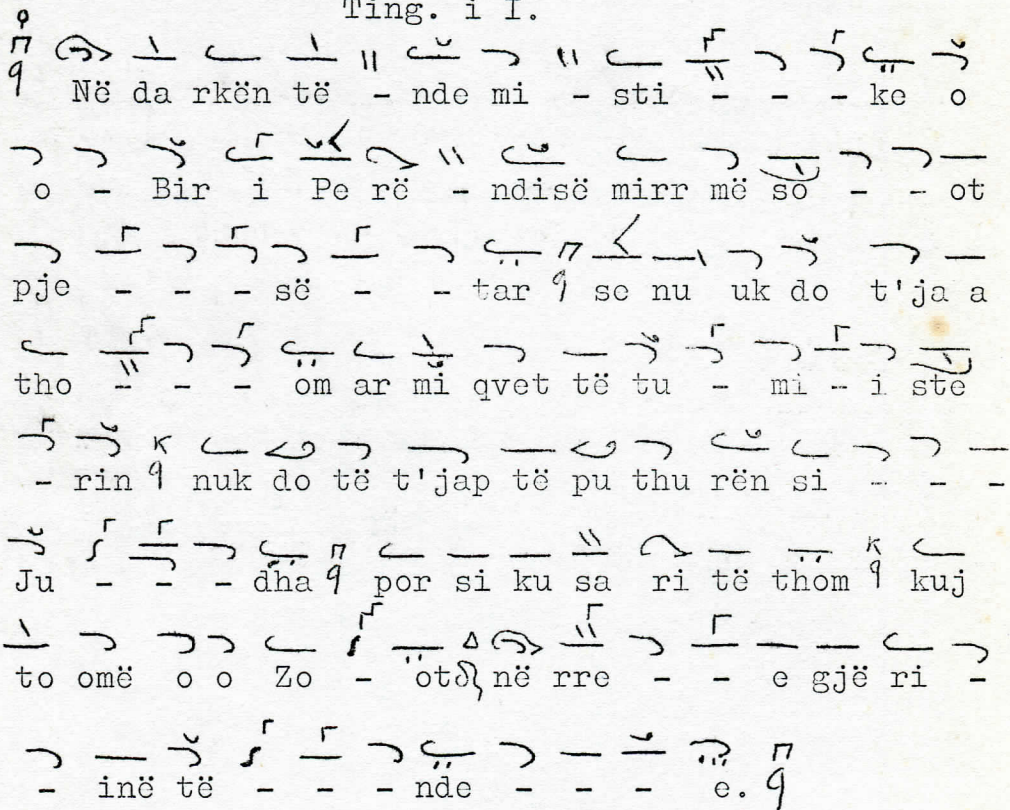 Ting. i I.
Në da rkën të - nde mi - sti - - - ke o
o - Bir i Pe rë - ndisë mirr më so - - ot
pje - - - së - - tar se nu uk do t'ja a
tho - - - om ar mi qvet të tu - mi - i ste
- rin nuk do të t'jap të pu thu rën si - - -
Ju - - - dha por si ku sa ri të thom kuj
to omë o o Zo - ot në rre - - e gjë ri -
- inë të - - - nde - - - e.